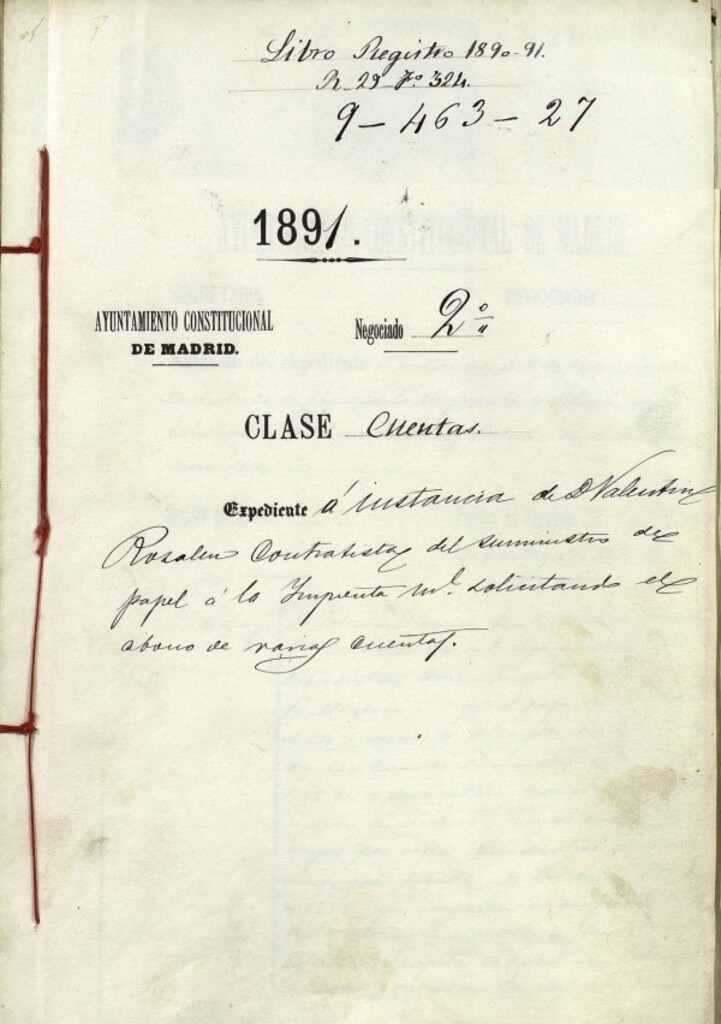 Libro Registro 1890-91.
R 29 Fº 324.
9-463-27
1891.
AYUNTAMIENTO CONSTITUCIONAL
DE MADRID.
Negociado 2º
CLASE Cuentas.
Expediente á instancia de D Valentin
Rosalen Contratista del suministro de
papel á la Imprenta ml. solicitando el
abono de varias cuentas.